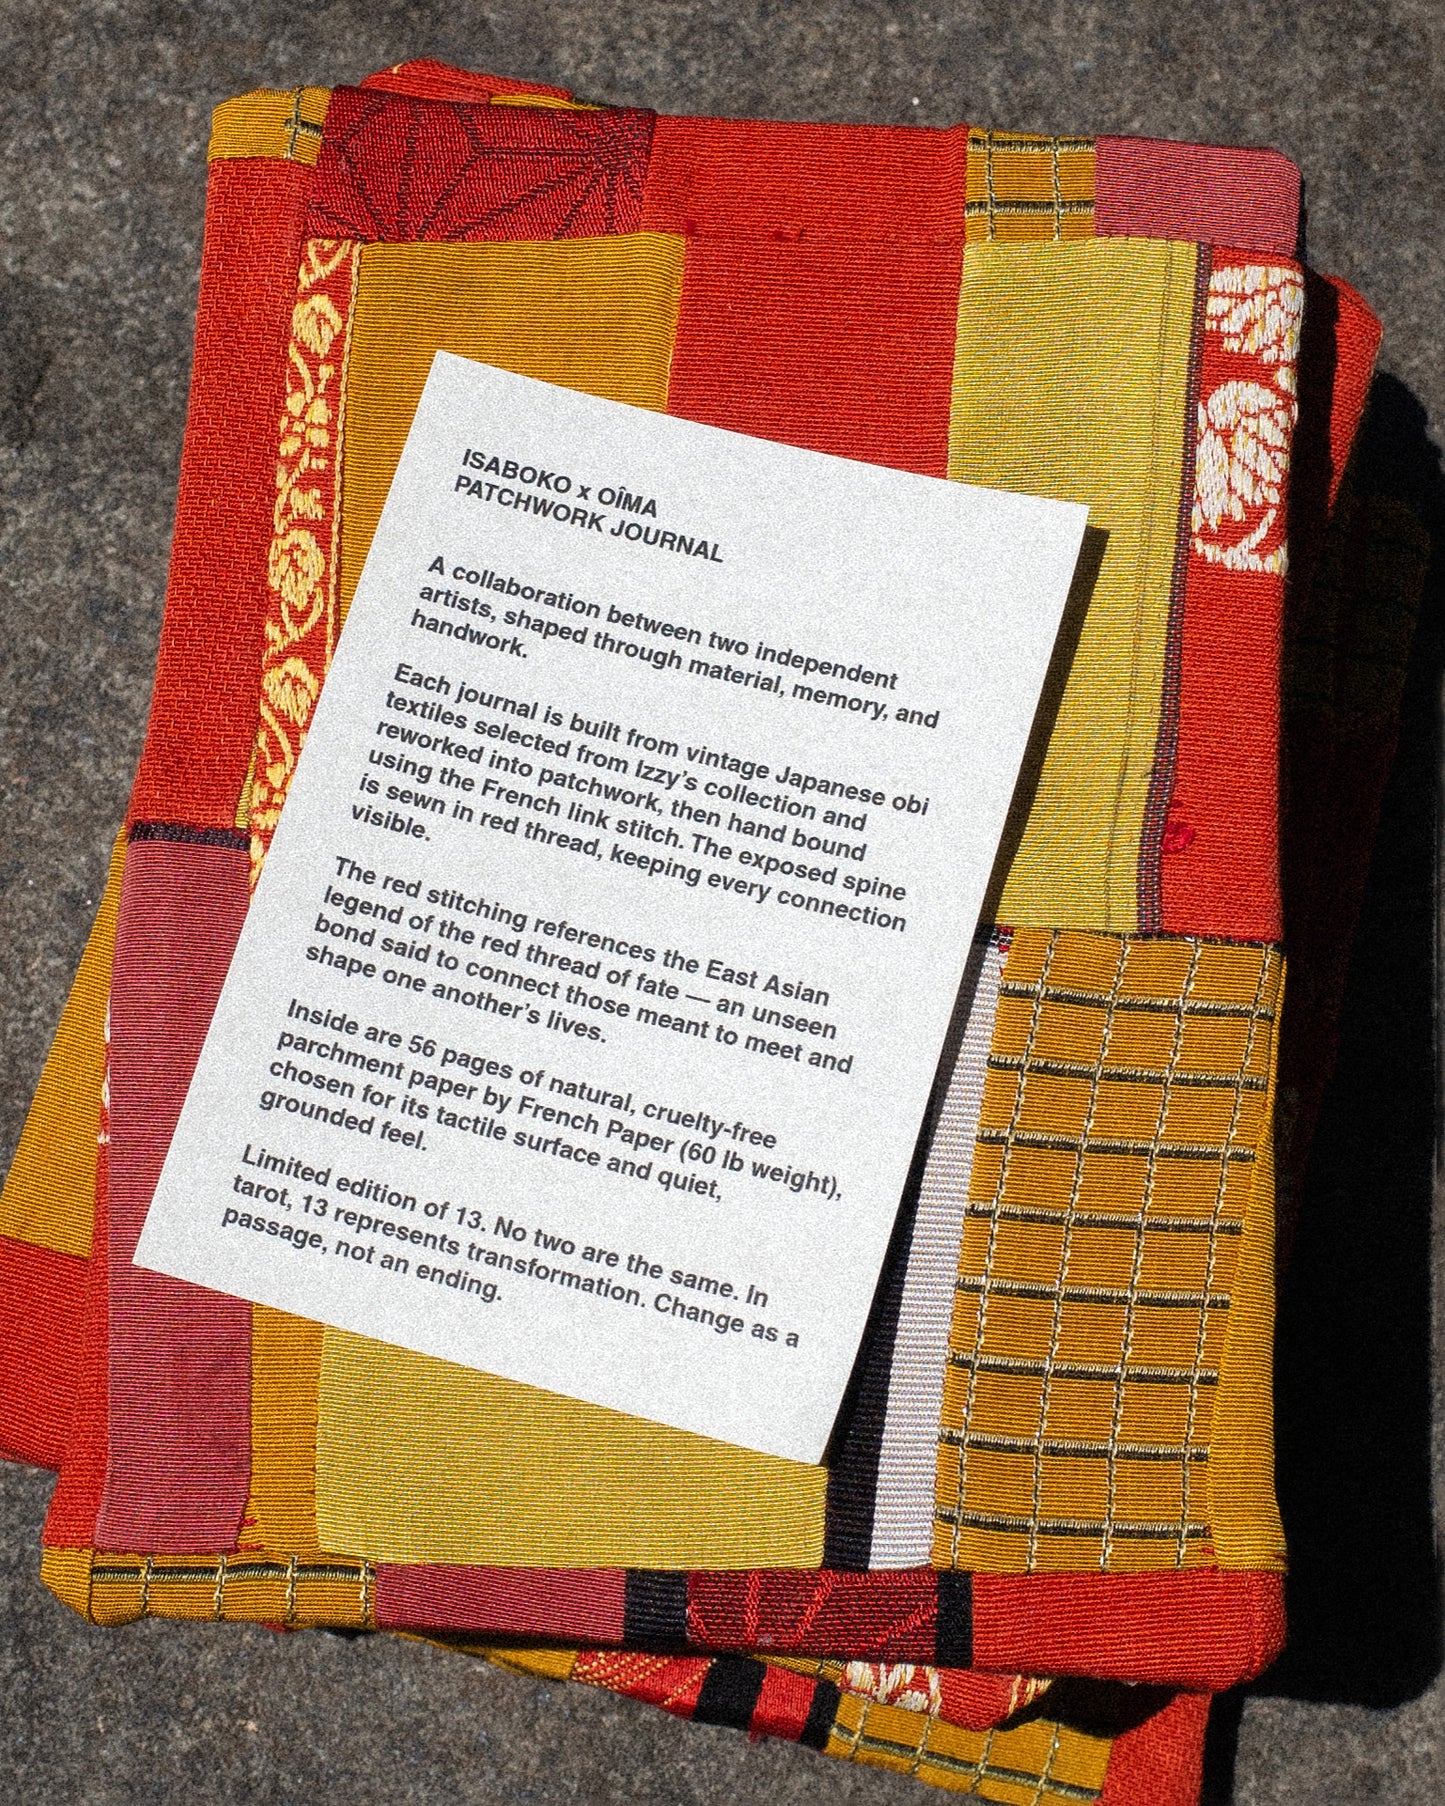 ISABOKO x OÎMA
PATCHWORK JOURNAL
A collaboration between two independent
artists, shaped through material, memory, and
handwork.
Each journal is built from vintage Japanese obi
textiles selected from Izzy’s collection and
reworked into patchwork, then hand bound
using the French link stitch. The exposed spine
is sewn in red thread, keeping every connection
visible.
The red stitching references the East Asian
legend of the red thread of fate — an unseen
bond said to connect those meant to meet and
shape one another’s lives.
Inside are 56 pages of natural, cruelty-free
parchment paper by French Paper (60 lb weight),
chosen for its tactile surface and quiet,
grounded feel.
Limited edition of 13. No two are the same. In
tarot, 13 represents transformation. Change as a
passage, not an ending.